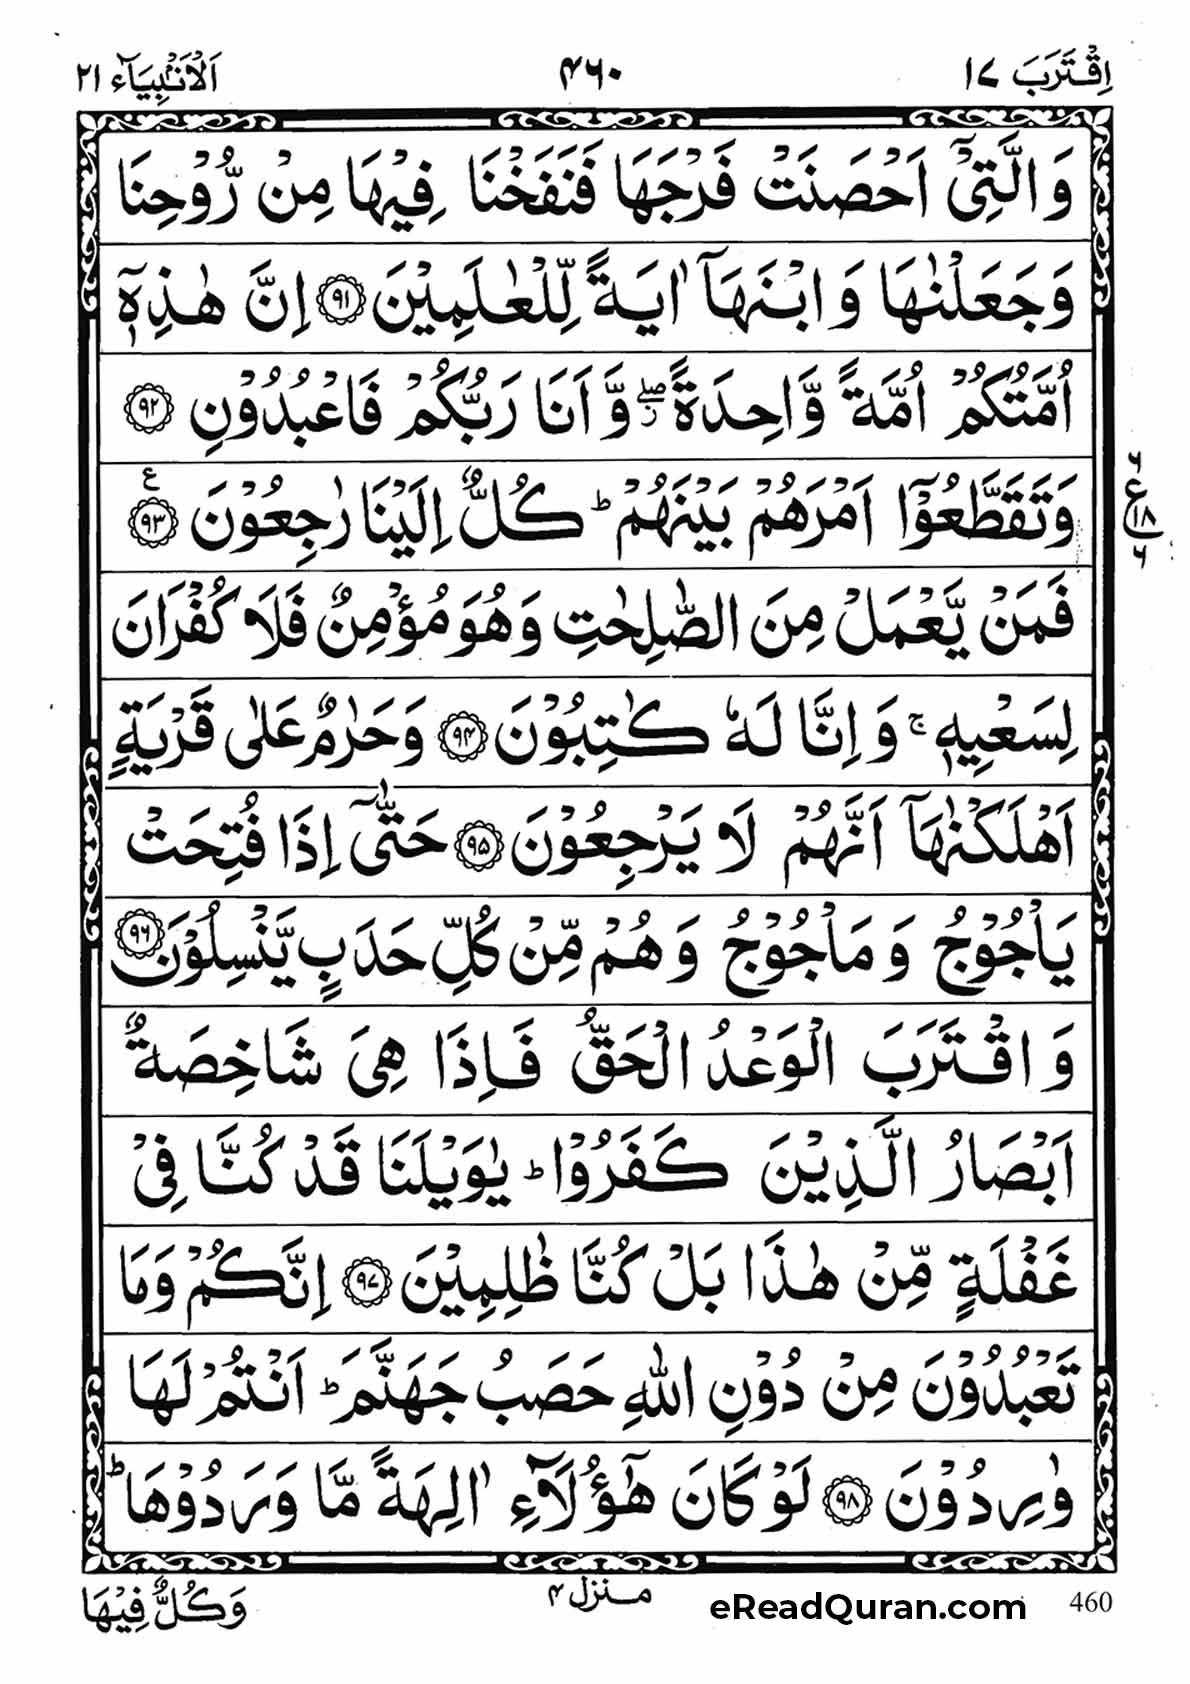 اِقْتَرَبَ ١٧ ٤٦٠ اَلْاَنْۢبِیَآء ٢١
وَالَّتِیْۤ اَحْصَنَتْ فَرْجَهَا فَنَفَخْنَا فِیْهَا مِنْ رُّوْحِنَا
وَجَعَلْنٰهَا وَابْنَهَاۤ اٰیَةً لِّلْعٰلَمِیْنَ ﴿۹۱﴾ اِنَّ هٰذِهٖۤ
اُمَّتُكُمْ اُمَّةً وَّاحِدَةً ۖ٘ وَّاَنَا رَبُّكُمْ فَاعْبُدُوْنِ ﴿۹۲﴾
وَتَقَطَّعُوْۤا اَمْرَهُمْ بَیْنَهُمْ ؕ كُلٌّ اِلَیْنَا رٰجِعُوْنَ ﴿۹۳﴾ ع
٦ ع ١٨ ٦
فَمَنْ یَّعْمَلْ مِنَ الصّٰلِحٰتِ وَهُوَ مُؤْمِنٌ فَلَا كُفْرَانَ
لِسَعْیِهٖ ۚ وَاِنَّا لَهٗ كٰتِبُوْنَ ﴿۹۴﴾ وَحَرٰمٌ عَلٰی قَرْیَةٍ
اَهْلَكْنٰهَاۤ اَنَّهُمْ لَا یَرْجِعُوْنَ ﴿۹۵﴾ حَتّٰۤی اِذَا فُتِحَتْ
یَاْجُوْجُ وَمَاْجُوْجُ وَهُمْ مِّنْ كُلِّ حَدَبٍ یَّنْسِلُوْنَ ﴿۹۶﴾
وَاقْتَرَبَ الْوَعْدُ الْحَقُّ فَاِذَا هِیَ شَاخِصَةٌ
اَبْصَارُ الَّذِیْنَ كَفَرُوْا ؕ یٰوَیْلَنَا قَدْ كُنَّا فِیْ
غَفْلَةٍ مِّنْ هٰذَا بَلْ كُنَّا ظٰلِمِیْنَ ﴿۹۷﴾ اِنَّكُمْ وَمَا
تَعْبُدُوْنَ مِنْ دُوْنِ اللّٰهِ حَصَبُ جَهَنَّمَ ؕ اَنْتُمْ لَهَا
وٰرِدُوْنَ ﴿۹۸﴾ لَوْ كَانَ هٰۤؤُلَآءِ اٰلِهَةً مَّا وَرَدُوْهَا ؕ
وَكُلٌّ فِیْهَا منزل ۴ eReadQuran.com 460